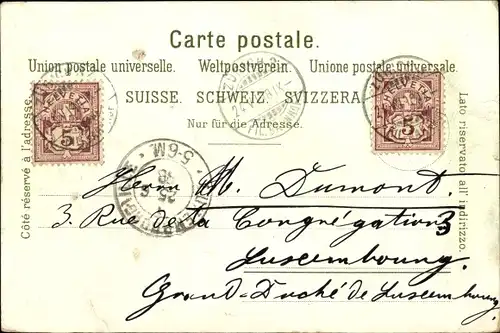 Carte postale.
Union postale universelle. Weltpostverein. Unione postale universale.
SUISSE. SCHWEIZ. SVIZZERA.
Nur für die Adresse.
Côté réservé à l'adresse.
Lato riservato all' indirizzo.
HELVETIA
5
HELVETIA
5
5-6M.
Herrn M. Dumont
3 Rue de la Congrégation 3
Luxembourg
Grand-Duché de Luxembourg.